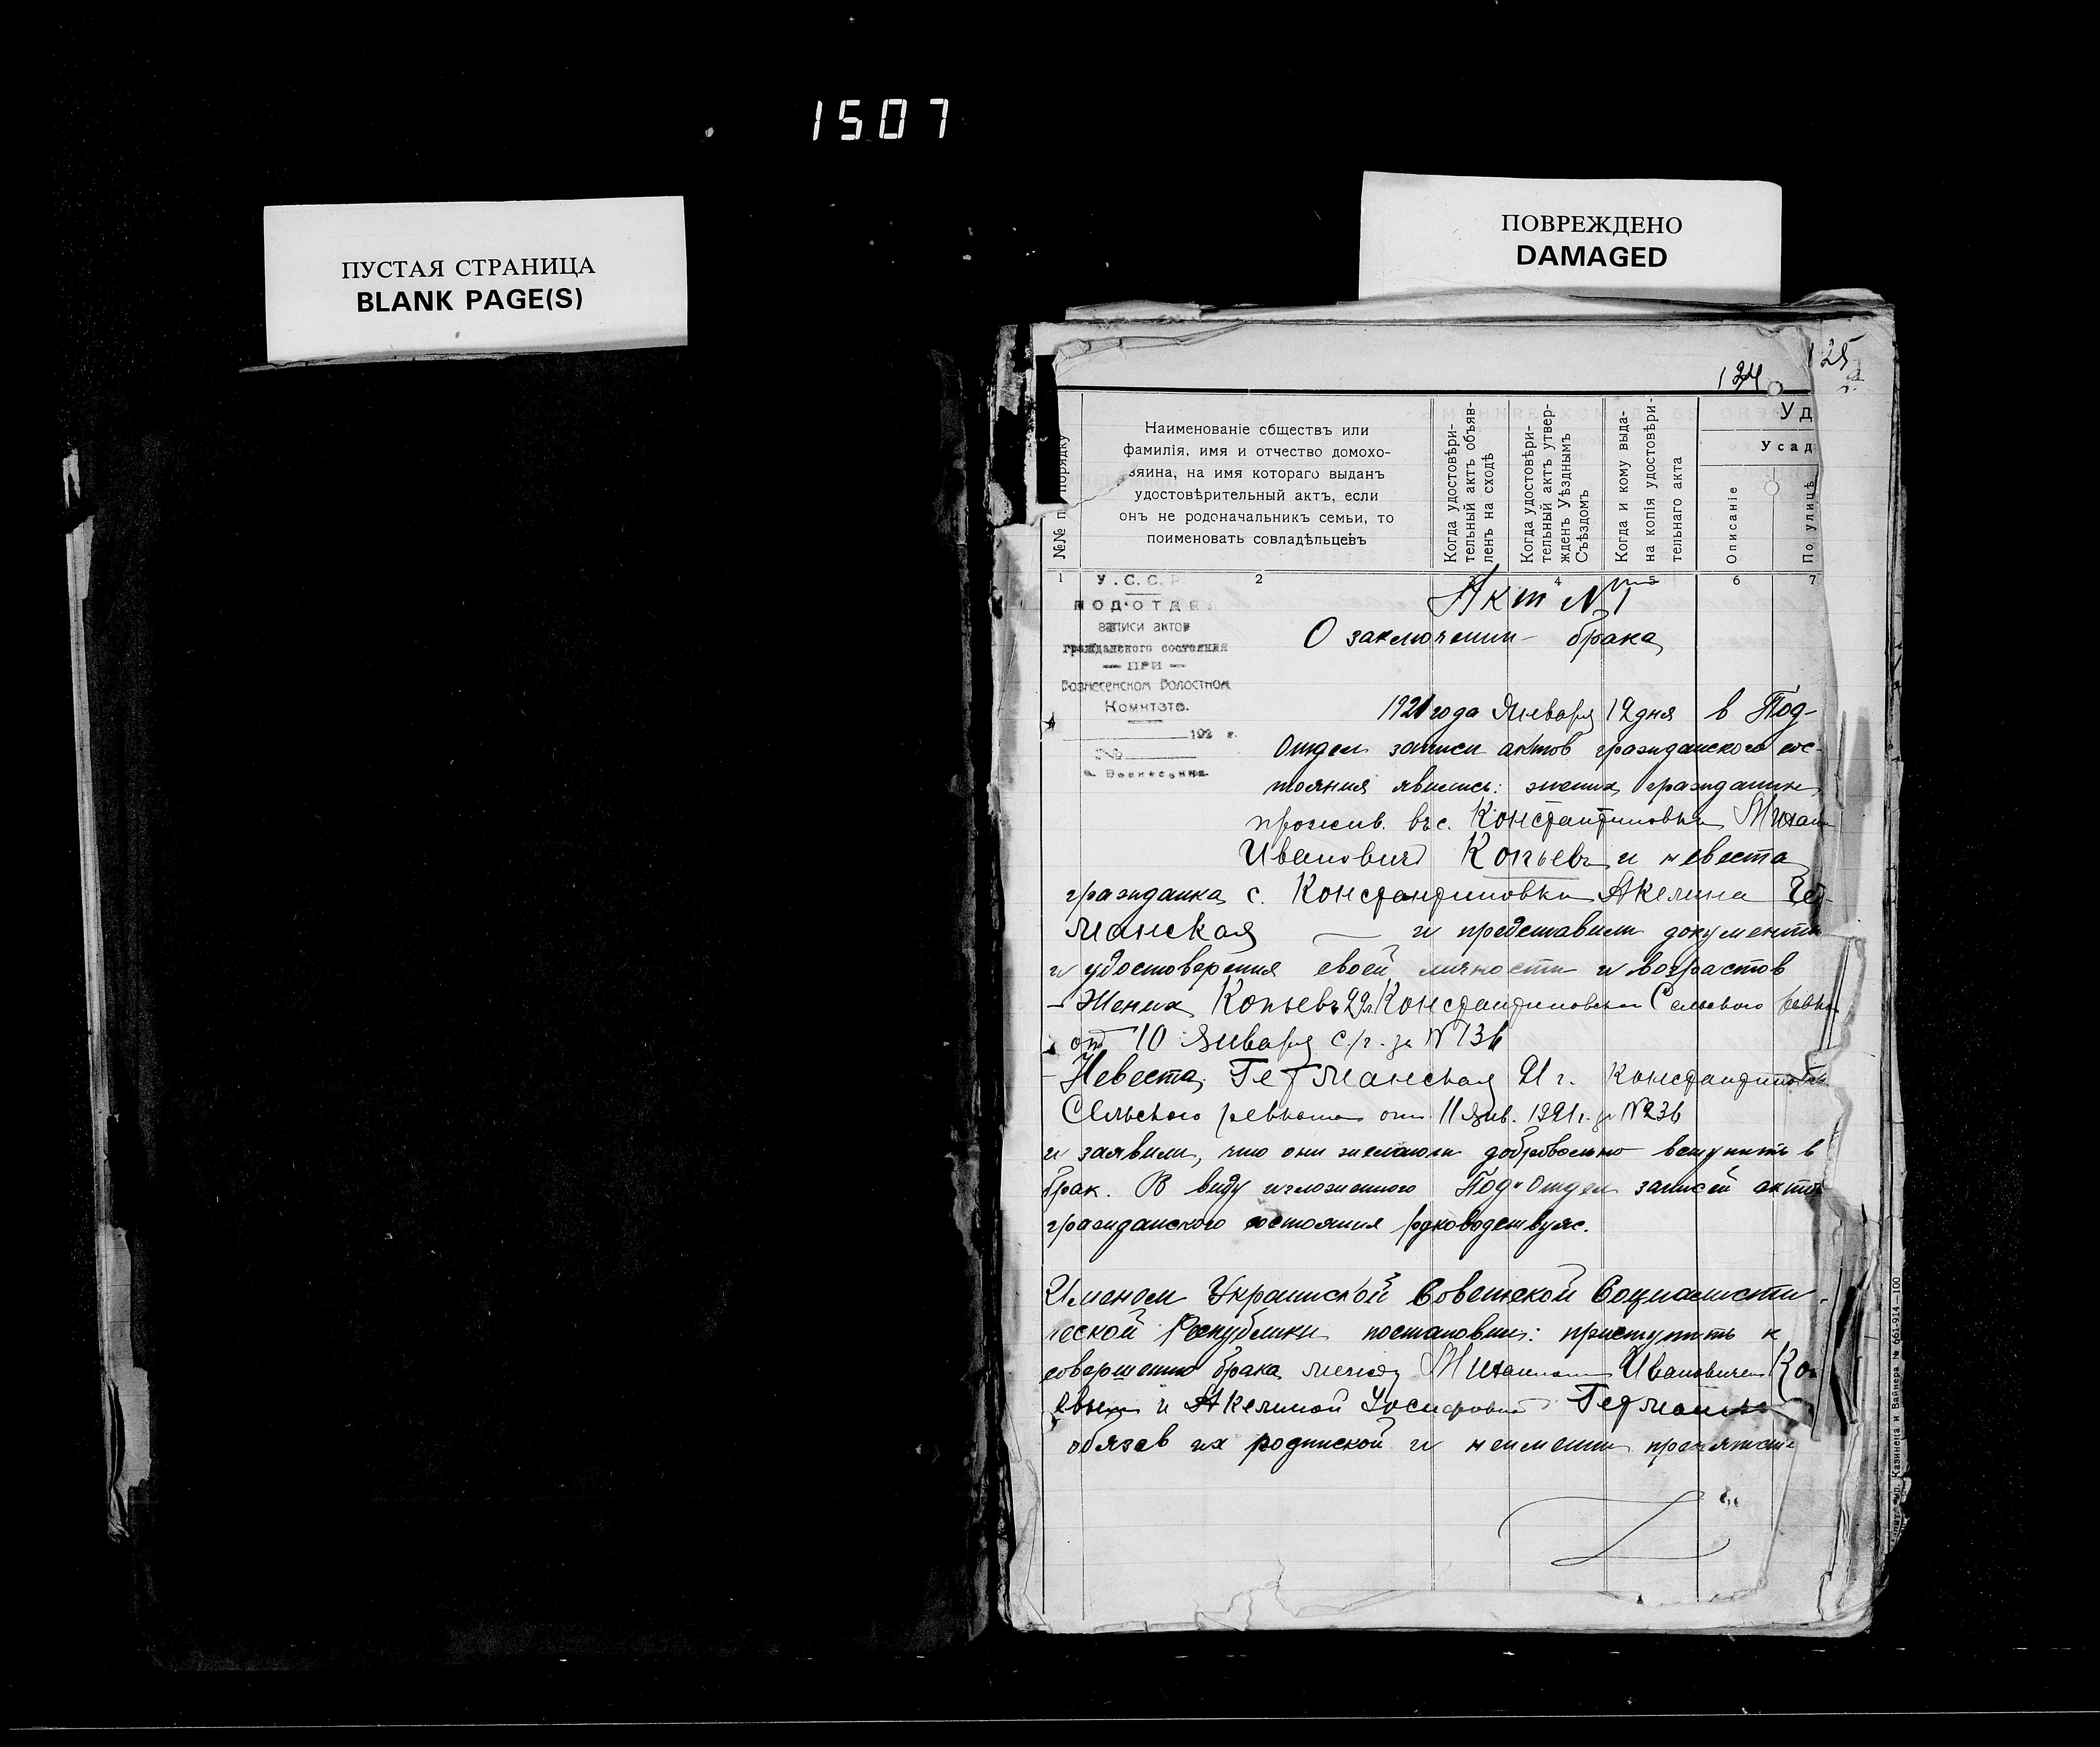 1507
ПУСТАЯ СТРАНИЦА
BLANK PAGE(S)
ПОВРЕЖДЕНО
DAMAGED
125
124
№№ п порядку
Наименованіе сбществъ или
фамилія, имя и отчество домохо-
зяина, на имя котораго выданъ
удостовѣрительный актъ, если
онъ не родоначальникъ семьи, то
поименовать совладѣльцевъ
Когда удостовѣри-
тельный актъ объяв-
ленъ на сходѣ
Когда удостовѣри-
тельный актъ утвер-
жденъ Уѣзднымъ
Съѣздомъ
Когда и кому выда-
на копія удостовѣри-
тельнаго акта
Уд
Усад
Описаніе
По улицѣ
1 2 3 4 5 6 7
У.С.С.Р.
ПОД-ОТДЕЛ
записи актов
гражданского состояния
— ПРИ —
Вознесенском Волостном
Комитете.
192 г.
№
с. Вознесенка.
Акт № 1
О заключении брака
1921 года Января 12 дня в Под-
Отдел записи актов гражданского сос-
тояния явились: жених гражданин
прожив. въ с. Константиновки Михаил
Иванович Копьевъ и невеста
гражданка с. Константиновки Акелина Гет-
манская и представили документы
и удостоверения своей личности и возрастов
— Жених Копьевъ 22 л. Константиновского Сельского ревко
от 10 Января с/г. за № 136
— Невеста Гетманская 21 г. Константиновск
Сельского ревкома от 11 Янв. 1921 г. за № 236
и заявили, что они желают добровольно вступить в
брак. В виду изложенного Под-Отдел записей актов
гражданского состояния руководствуяс.
Именем Украинской Советской Социалисти-
ческой Республики постановил: приступить к
совершению брака между Михаилом Ивановичем Коп
евым и Акелиной Иосифовной Гетманско
обязав их подпиской и неимении препятстви
Казинеца и Вайнера № 661-914—100